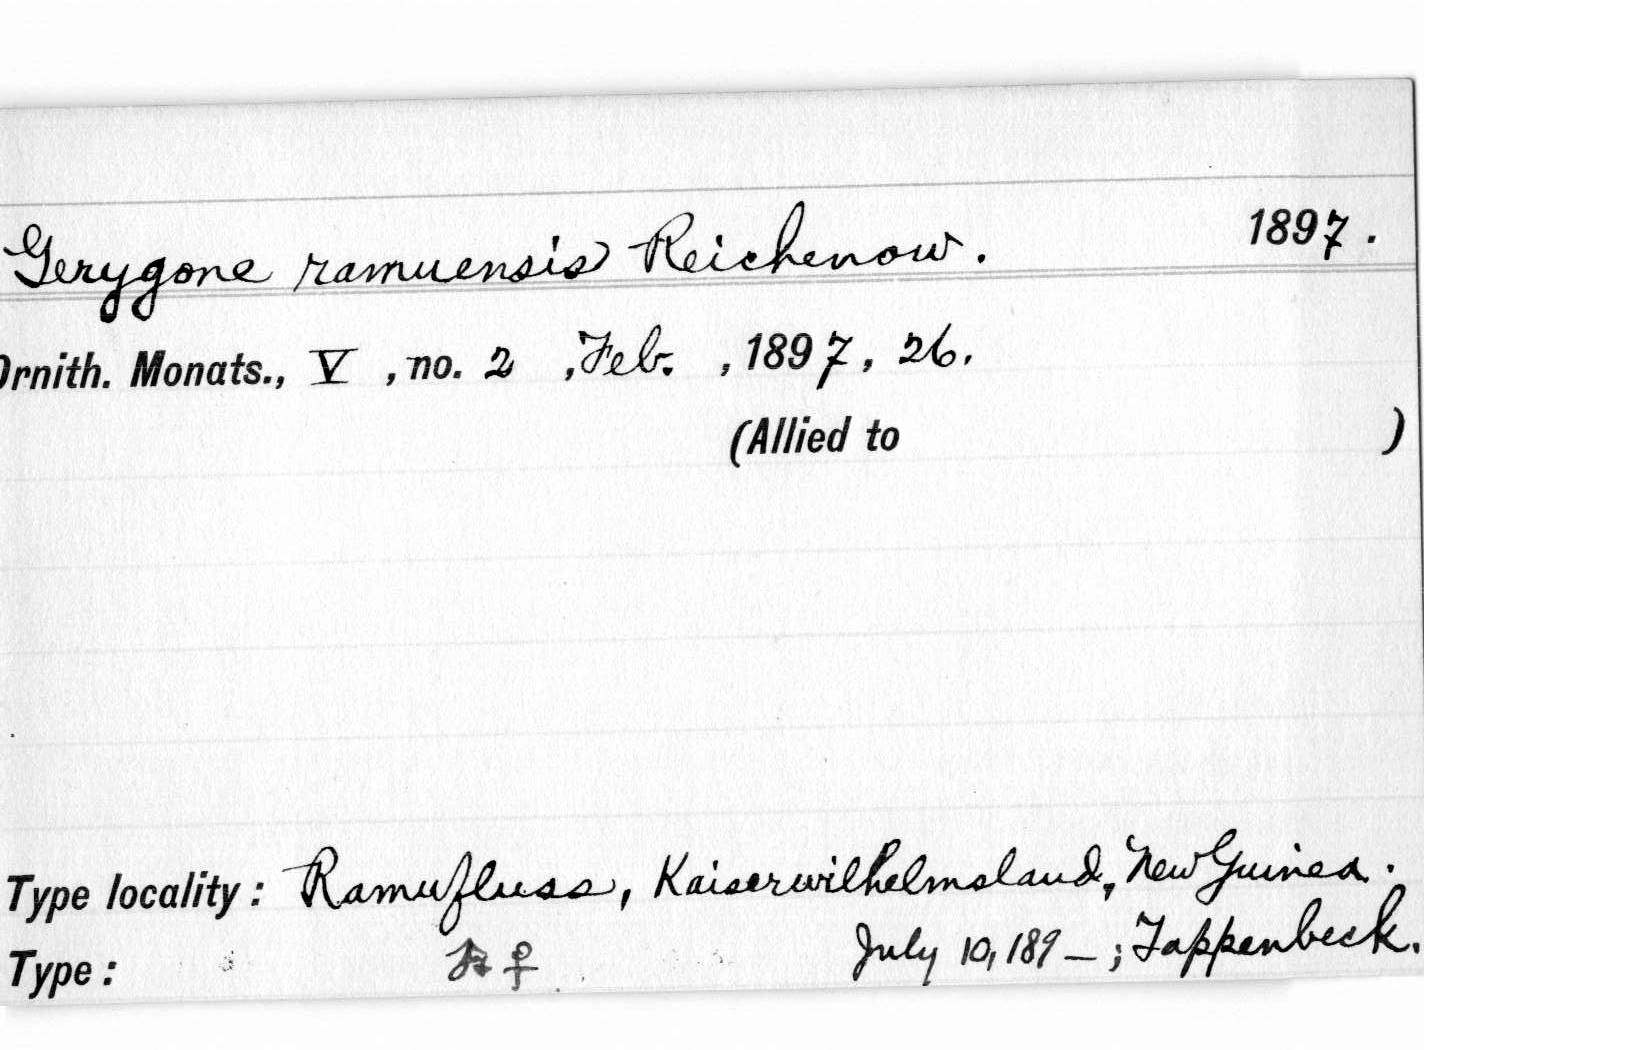 Gerygone ramuensis Reichenow. 1897.
Ornith. Monats., V, no. 2, Feb., 1897, 26.
(Allied to )
Type locality: Ramufluss, Kaiserwilhelmsland, New Guinea.
Type: ♀ July 10, 189_; Tappenbeck.